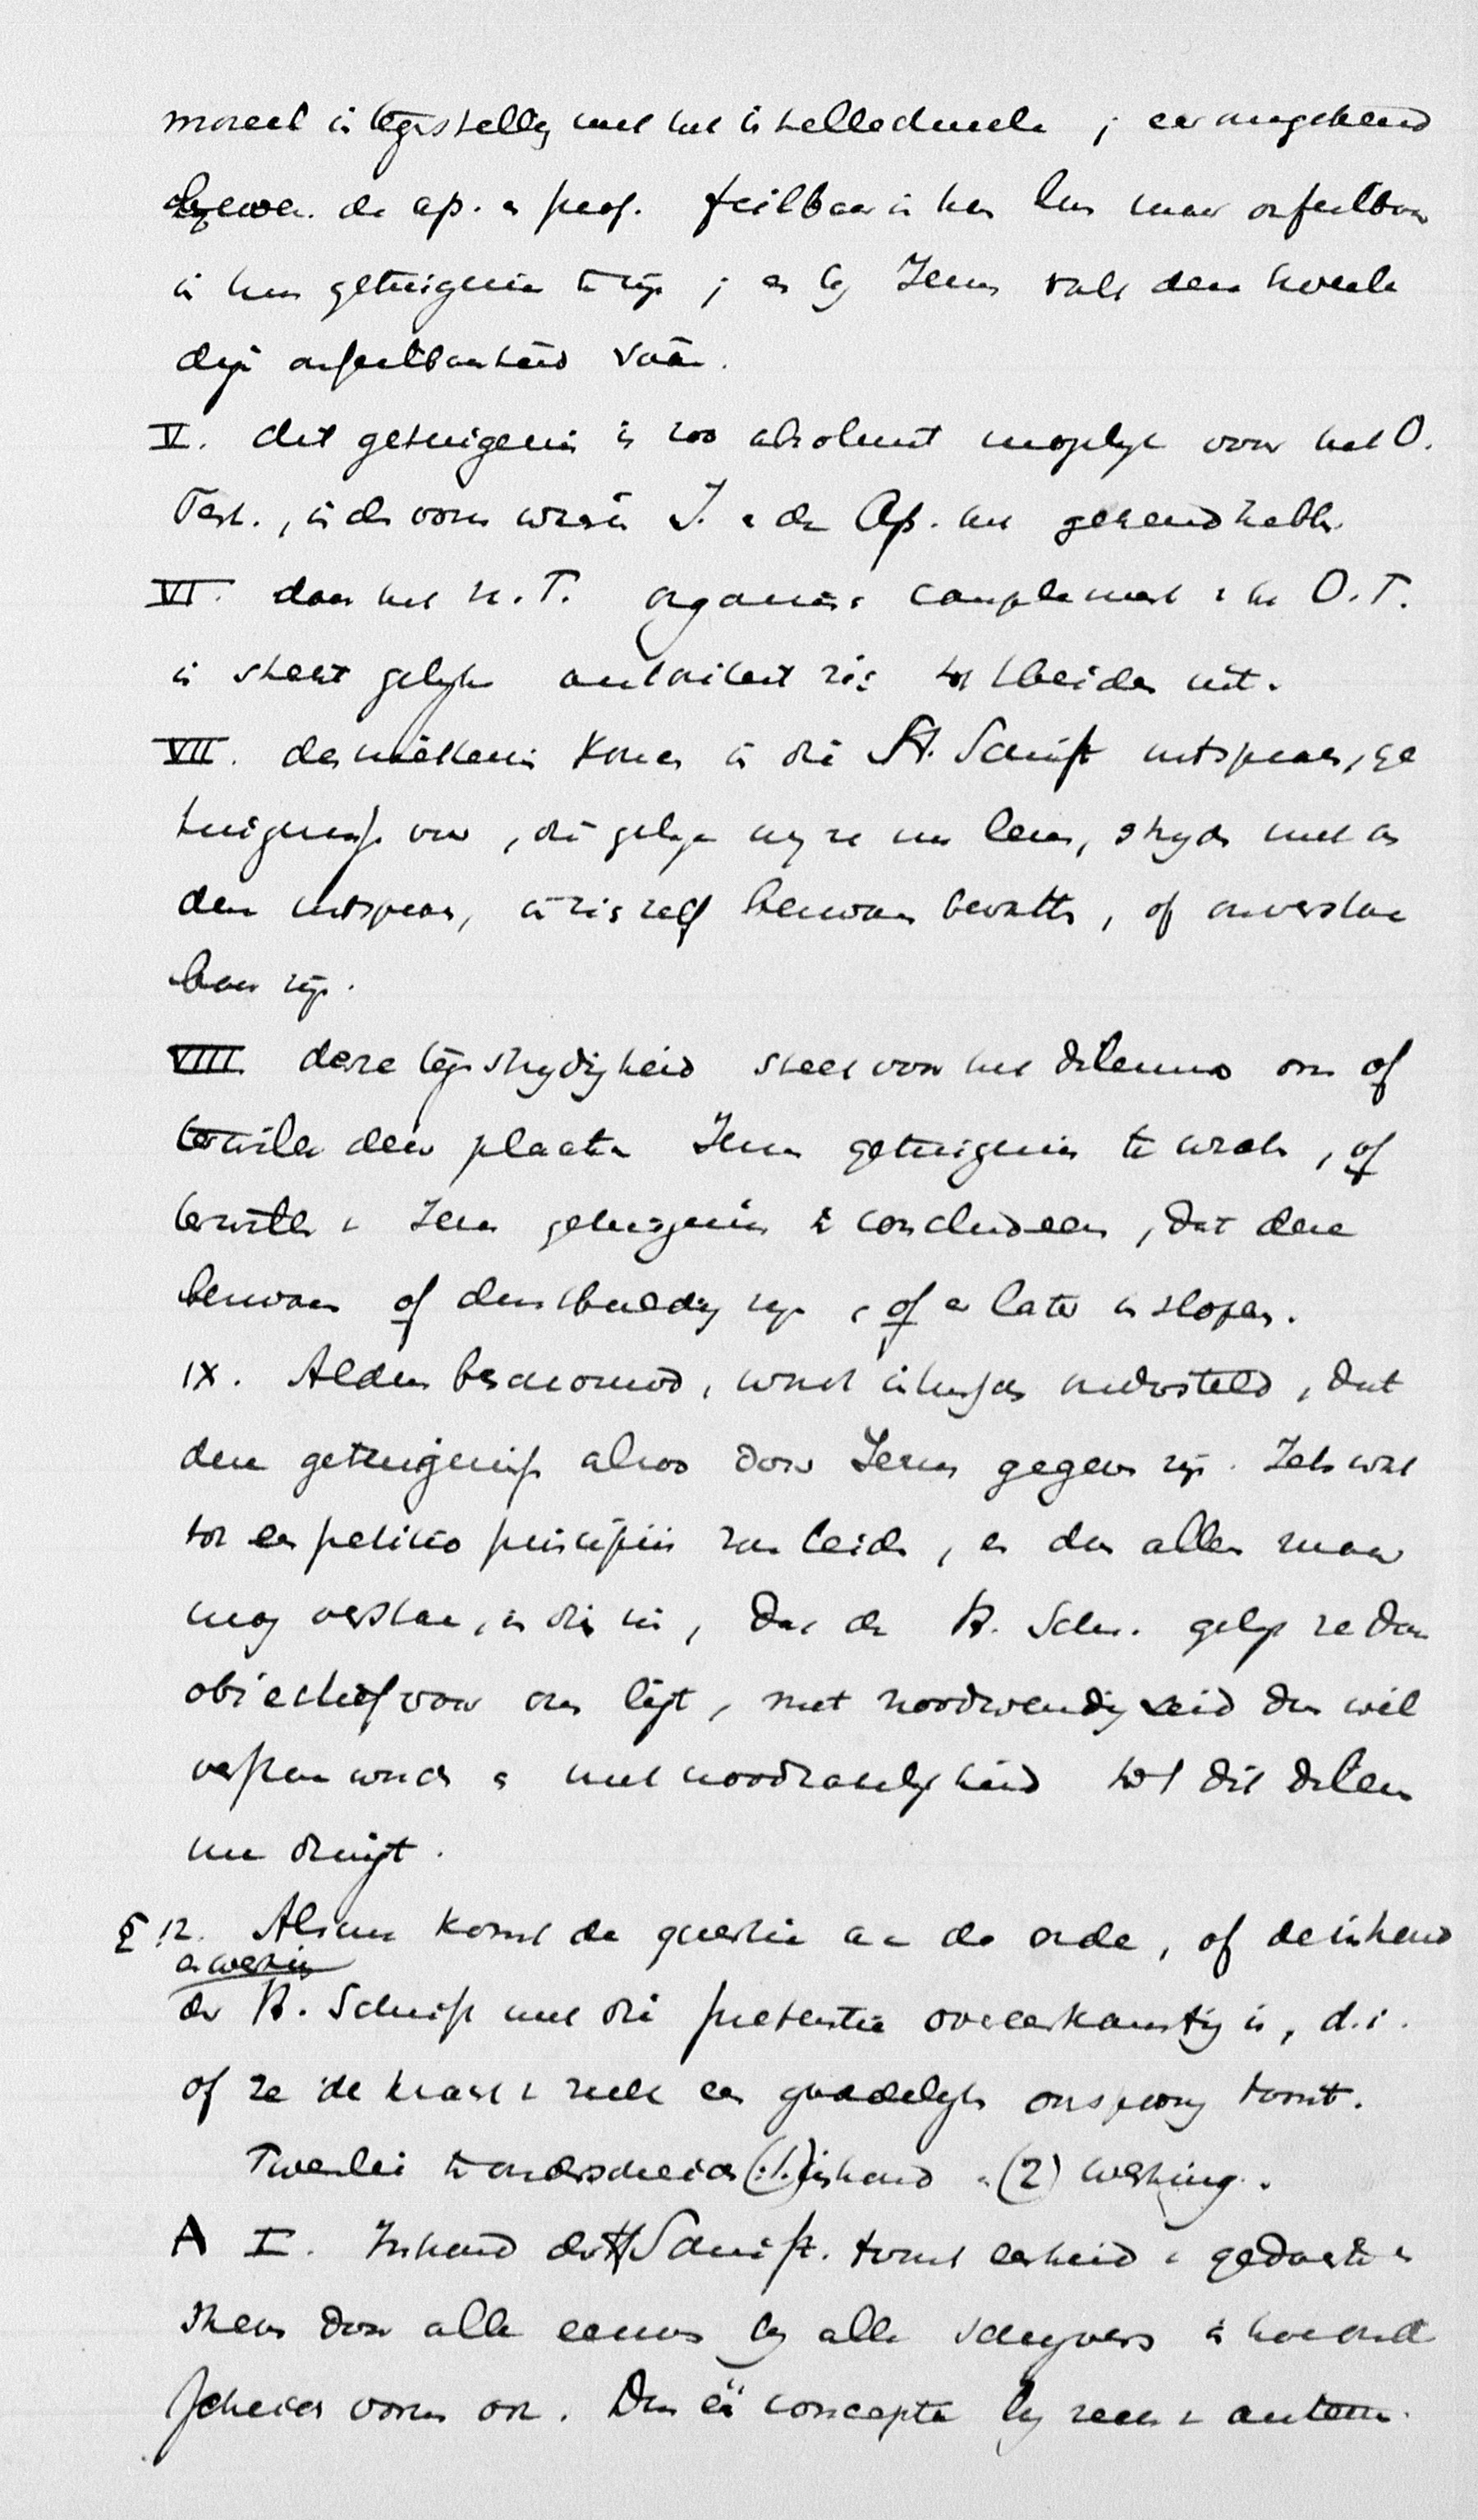 moreel in tegenstelling met het intellectueele ; en omgekeerd
bezweer. de ap. en prof. feilbaar in hun leven maar onfeilbaar
in hun getuigenis te zijn ; en bij Jezus valt deze tweeledige
onfeilbaarheid
V. dit getuigenis is zoo absoluut mogelijk voor het O.
Test., in de vorm waarin J. en de Ap. het gekend hebben.
VI. daar het N.T. organisch complement v. het O.T.
is strekt gelijke autoriteit zich tot beiden uit.
VII. desniettemin komen in die H. Schrift uitspraken, ge
tuigenissen voor, die gelijk wij ze nu lezen, strijden met an
dere uitspraken, in zich zelf bezwaren bevatten, of onverstaan
baar zijn.
VIII deze tegenstrijdigheid stelt voor het dilemma om of
terwille dezer plaatsen Jezus getuigenis te wraken, of
terwille v. Jezus getuigenis te concludeeren, dat deze
bezwaren of denkbeeldig zijn, of er later in slopen.
IX. Aldus beredeneerd, wordt intusschen ondersteld, dat
deze getuigenis alzoo door Jezus gegeven zijn. Iets wat
tot een petitio principii zou leiden, en dus alleen maar
mag verstaan, in die zin, dat de H. Schr. gelijk ze daar
objectief voor ons ligt, met noodwendigheid dus wil
verstaan worden en met noodzakelijkheid tot dit dilem
ma dringt.
§ 12. Alsnu komt de quaestie aan de orde, of de inhoud
en werking
der H. Schrift met die pretentie overeenkomstig is, d.i.
of ze de kracht v. zulk een goddelijken oorsprong toont.
Tweeërlei te onderscheiden (1) inhoud en (2) werking.
A I. Inhoud der H Schrift. toont eenheid v. gedachten
streven door alle eeuwen bij alle schrijvers in hoe onder
scheiden vorm ook. Dus één conceptie bij zeer v. auteurs.